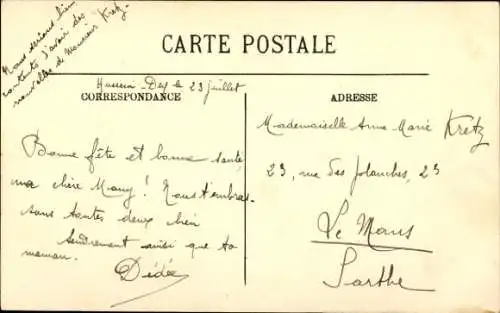 Nous serions bien
contents d'avoir des
nouvelles de Monsieur Kretz
CARTE POSTALE
Hussein-Dey le 23 juillet
CORRESPONDANCE
Bonne fête et bonne santé,
ma chère Many! Nous t'embras-
sons toutes deux bien
tendrement ainsi que ta
maman.
Dédée
ADRESSE
Mademoiselle Anne Marie Kretz
23, rue des 23
Le Mans
Sarthe